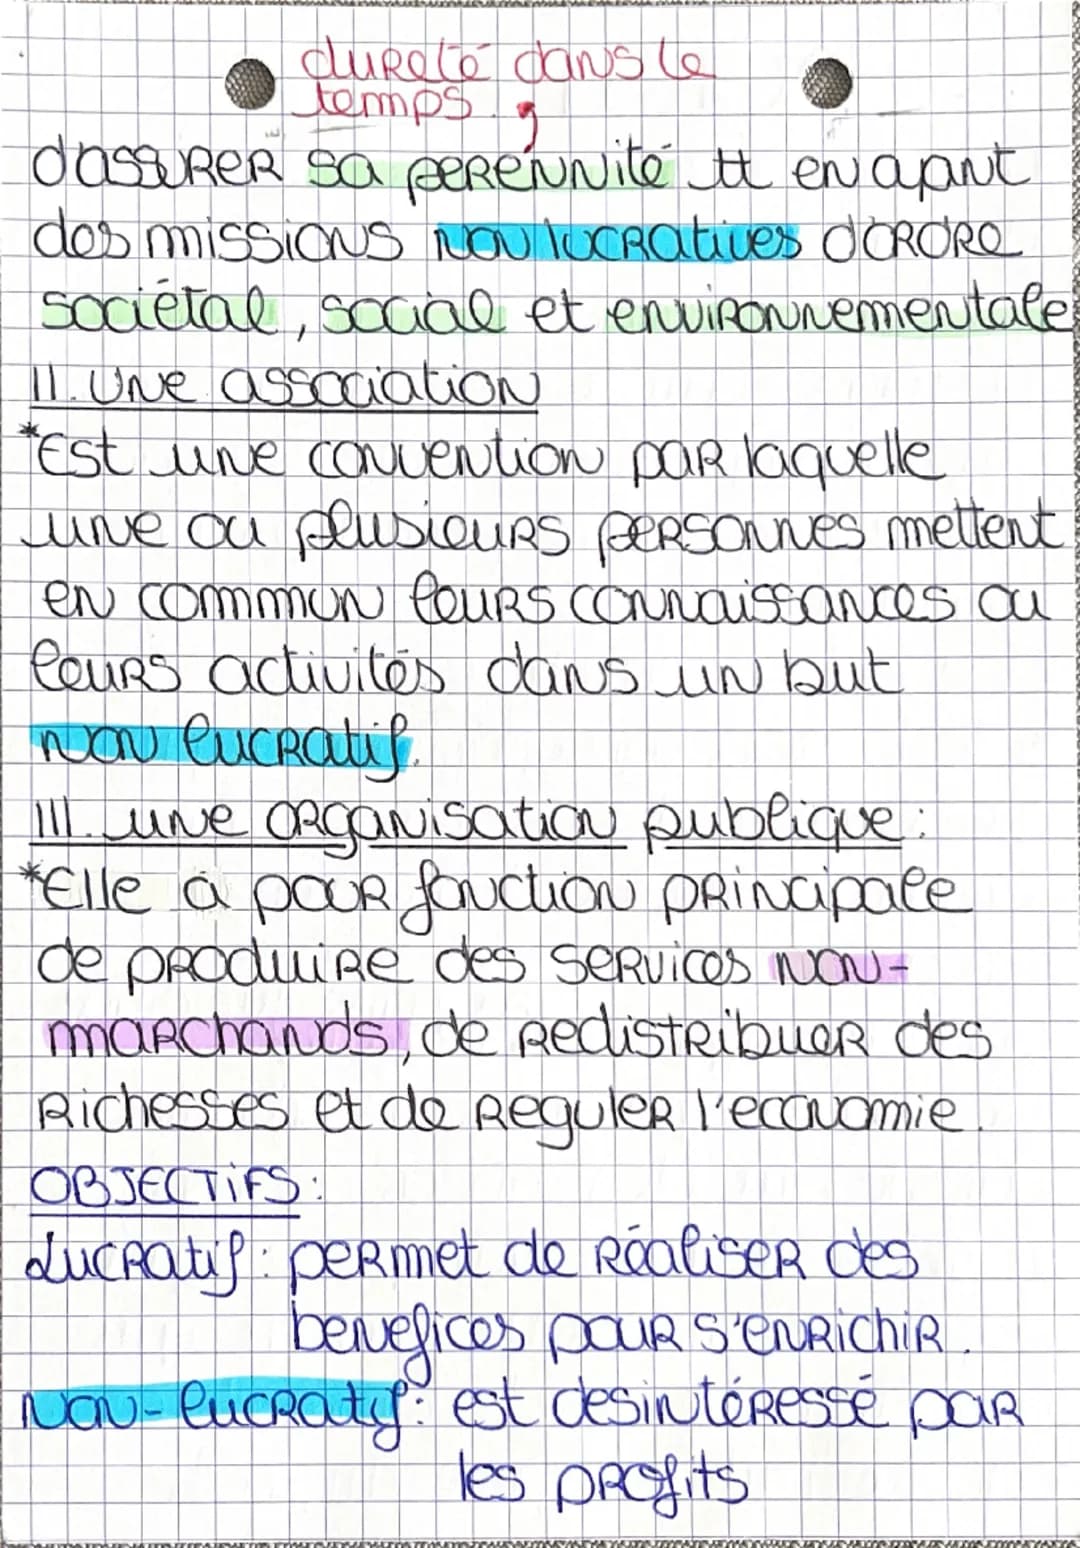 dureté dans le
temps.
d'assurer sa perénnité tt en ayant
des missions non lucratives d'ordre
sociétal, social et environnementale
II. Une association
*Est une convention par laquelle
une ou plusieurs personnes mettent
en commun leurs connaissances ou
leurs activités dans un but
non lucratif.
III. une organisation publique :
*Elle a pour fonction principale
de produire des services non-
marchands, de redistribuer des
richesses et de reguler l'economie.
OBJECTiFS :
Lucratif : permet de réaliser des
benefices pour s'enrichir.
Non-lucratif : est desintéressé par
les profits